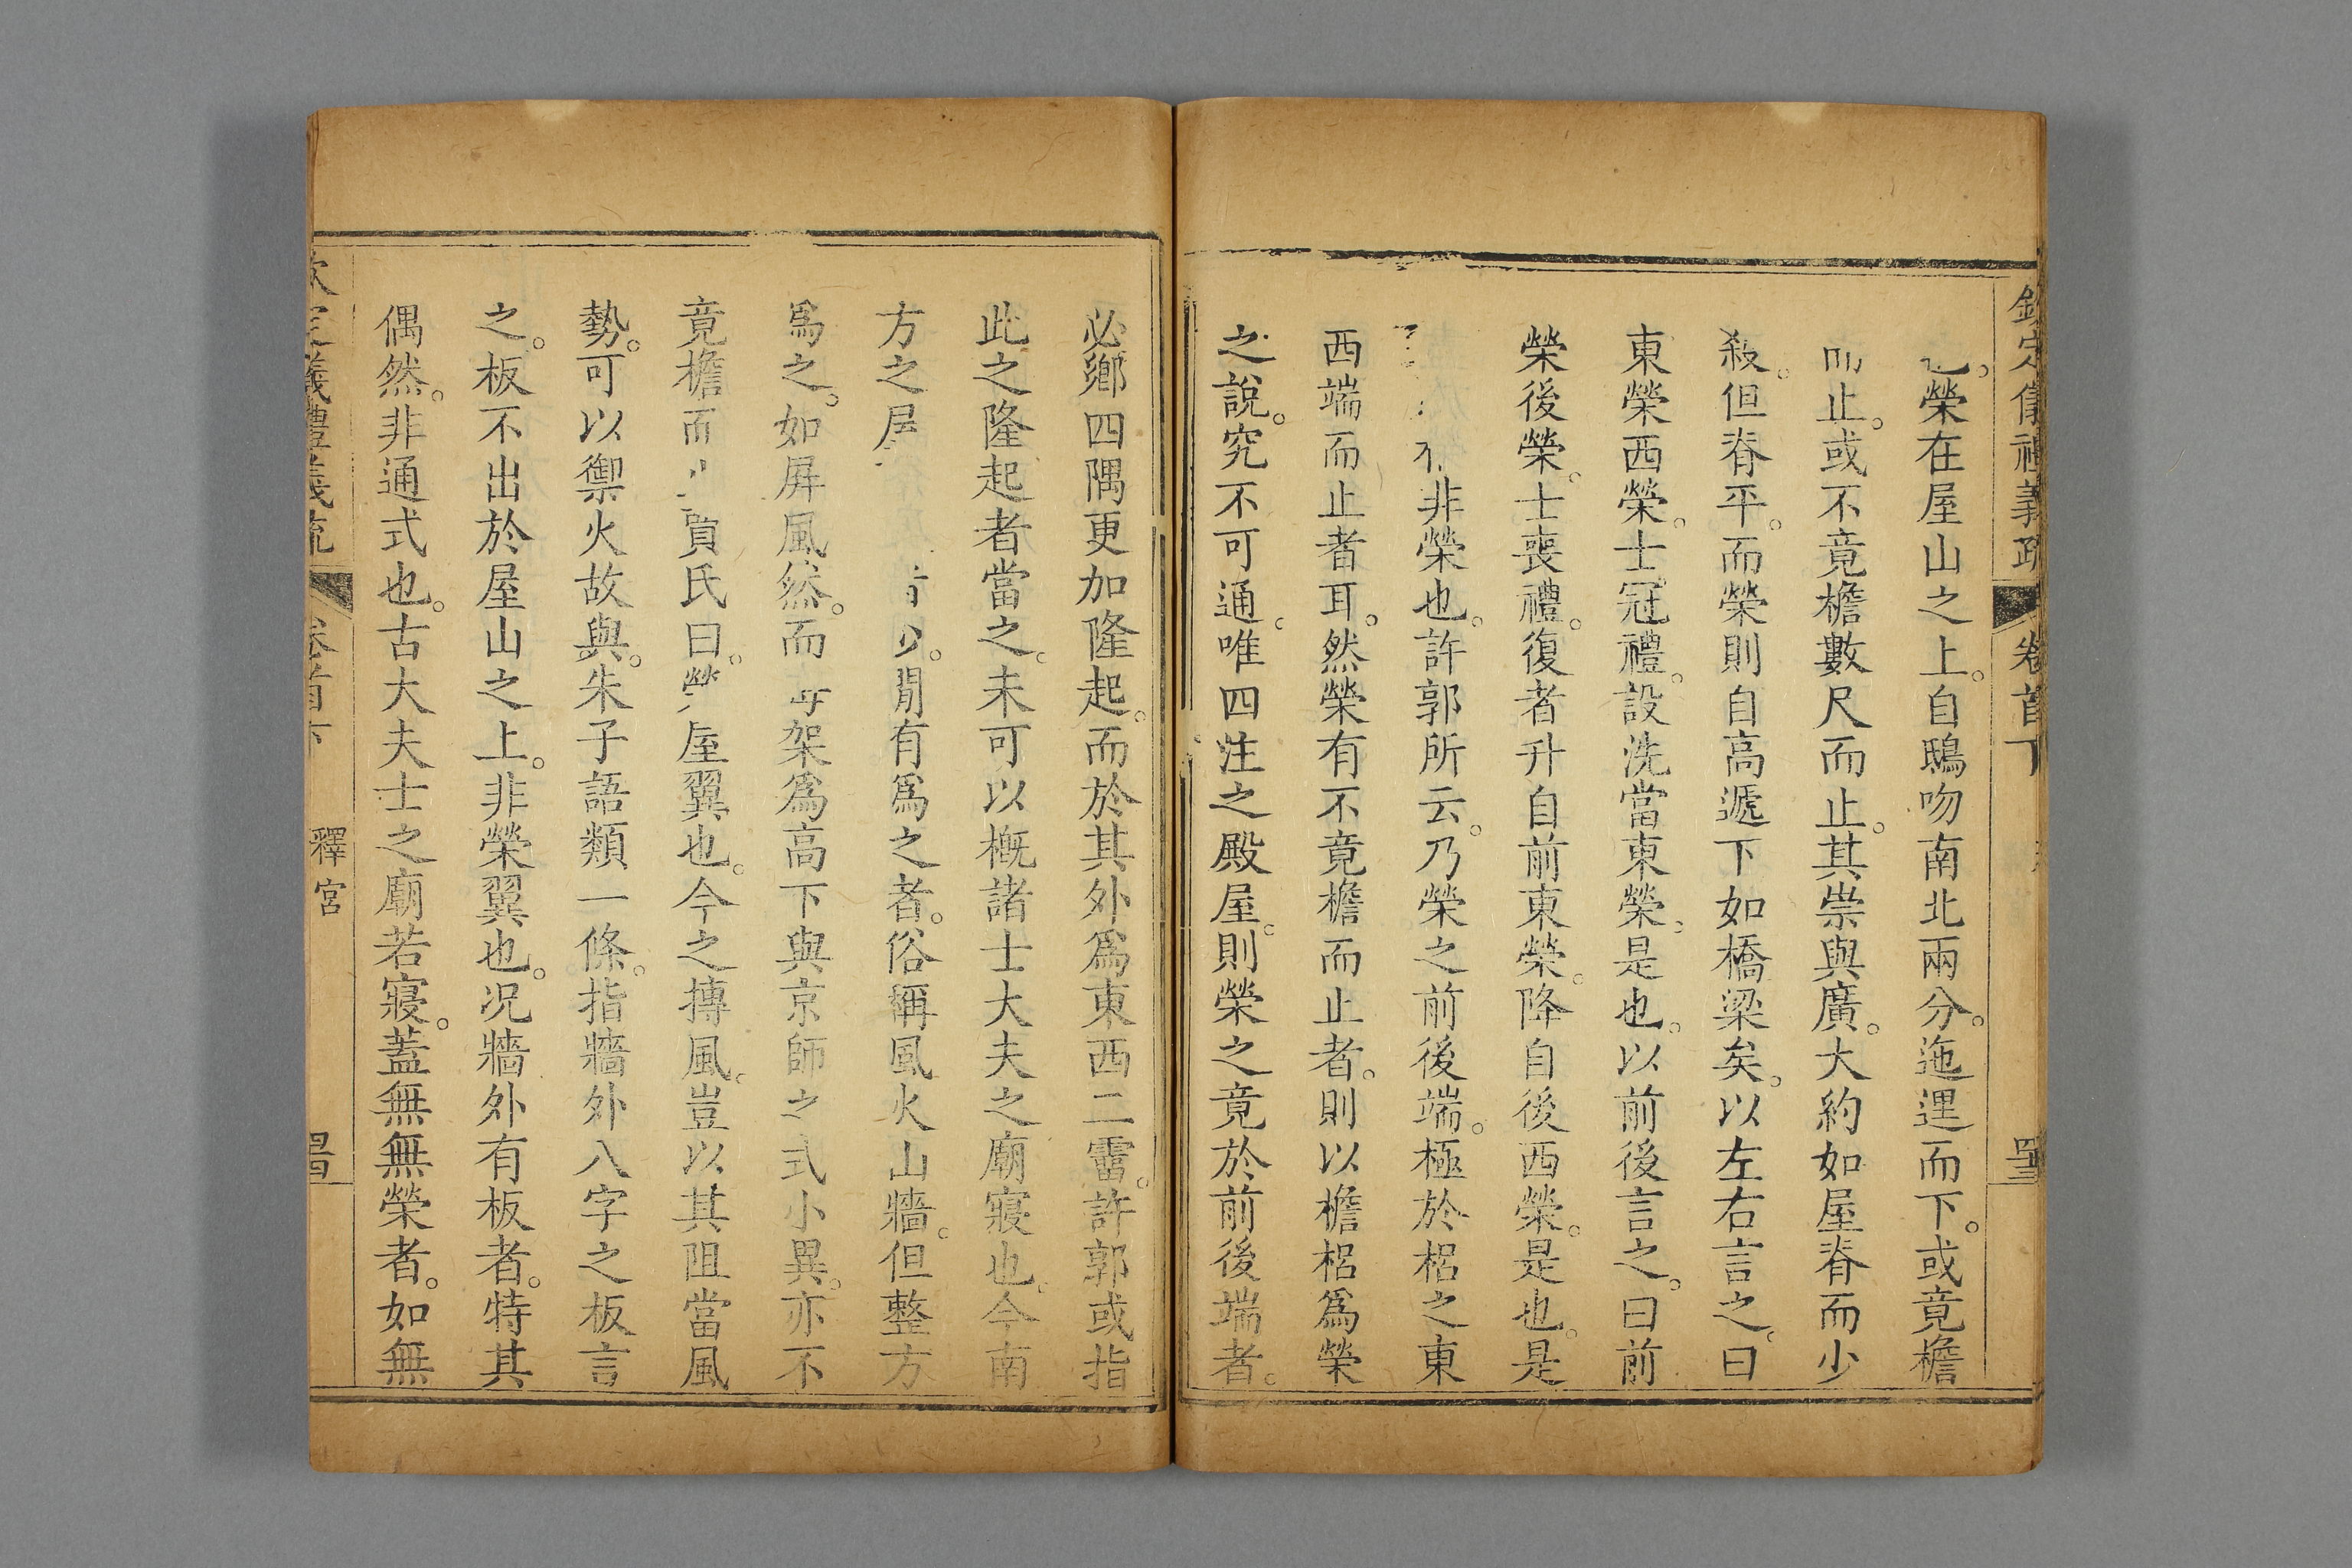 欽定儀禮義疏 卷首下
榮在屋山之上。自鴟吻南北兩分。迤邐而下。或竟檐
止。或不竟檐數尺而止。其崇與廣。大約如屋脊而少
殺。但脊平。而榮則自高遞下如橋梁矣。以左右言之。曰
東榮西榮。士冠禮。設洗當東榮。是也。以前後言之。曰前
榮後榮。士喪禮。復者升自前東榮。降自後西榮。是也。是
非榮也。許郭所云。乃榮之前後端。極於梠之東
西端而止者耳。然榮有不竟檐而止者。則以檐梠爲榮
之說。究不可通。唯四注之殿屋。則榮之竟於前後端者。
必鄉四隅更加隆起。而於其外爲東西二霤。許郭或指
此之隆起者當之。未可以概諸士大夫之廟寢也。今南
方之 閒有爲之者。俗稱風火山牆。但整方
爲之。如屏風然。而 架爲高下與京師之式小異。亦不
竟檐而 賈氏曰。榮 屋翼也。今之摶風。豈以其阻當風
勢。可以禦火故與。朱子語類一條。指牆外八字之板言
之。板不出於屋山之上。非榮翼也。况牆外有板者。特其
偶然。非通式也。古大夫士之廟若寢。蓋無無榮者。如無
釋宮